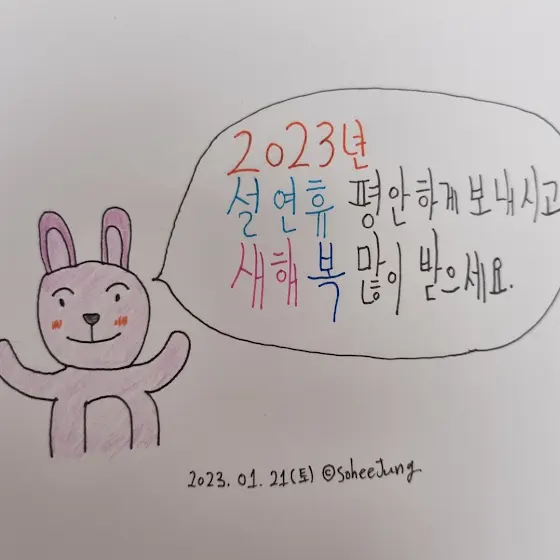 2023년
설 연휴 평안하게 보내시고
새해 복 많이 받으세요.
2023. 01. 21(토) ©SoheeJung